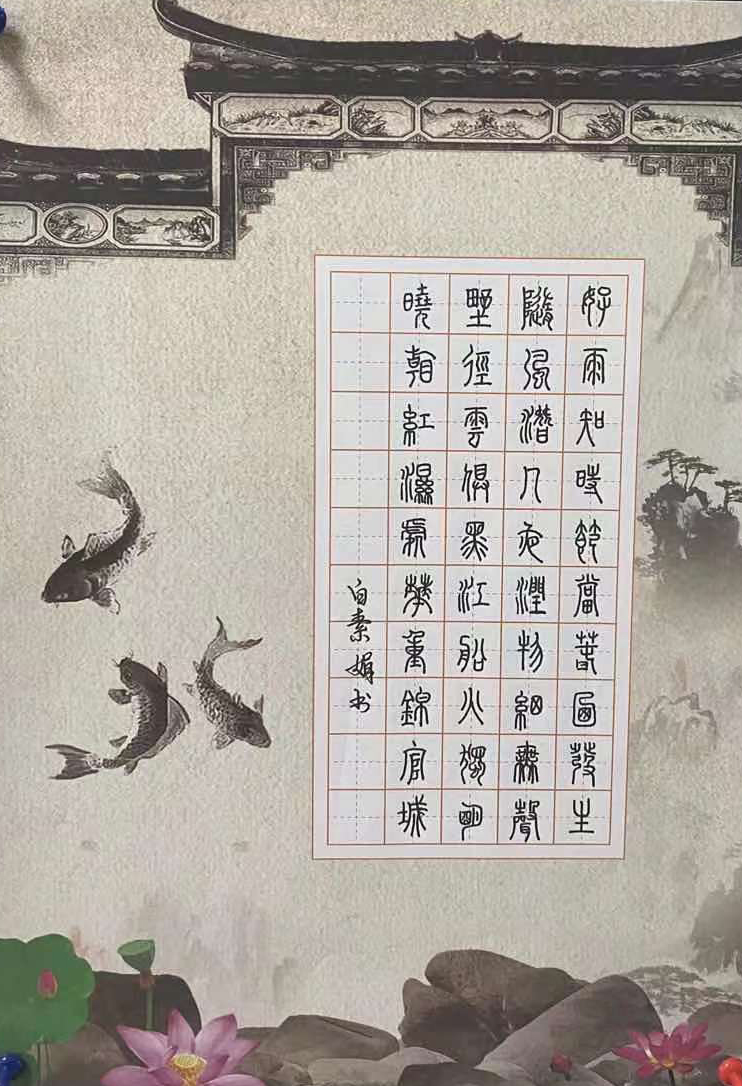 好雨知時節當春乃發生
隨風潛入夜潤物細無聲
野徑雲俱黑江船火獨明
曉看紅濕處華重錦官城
白素娟书